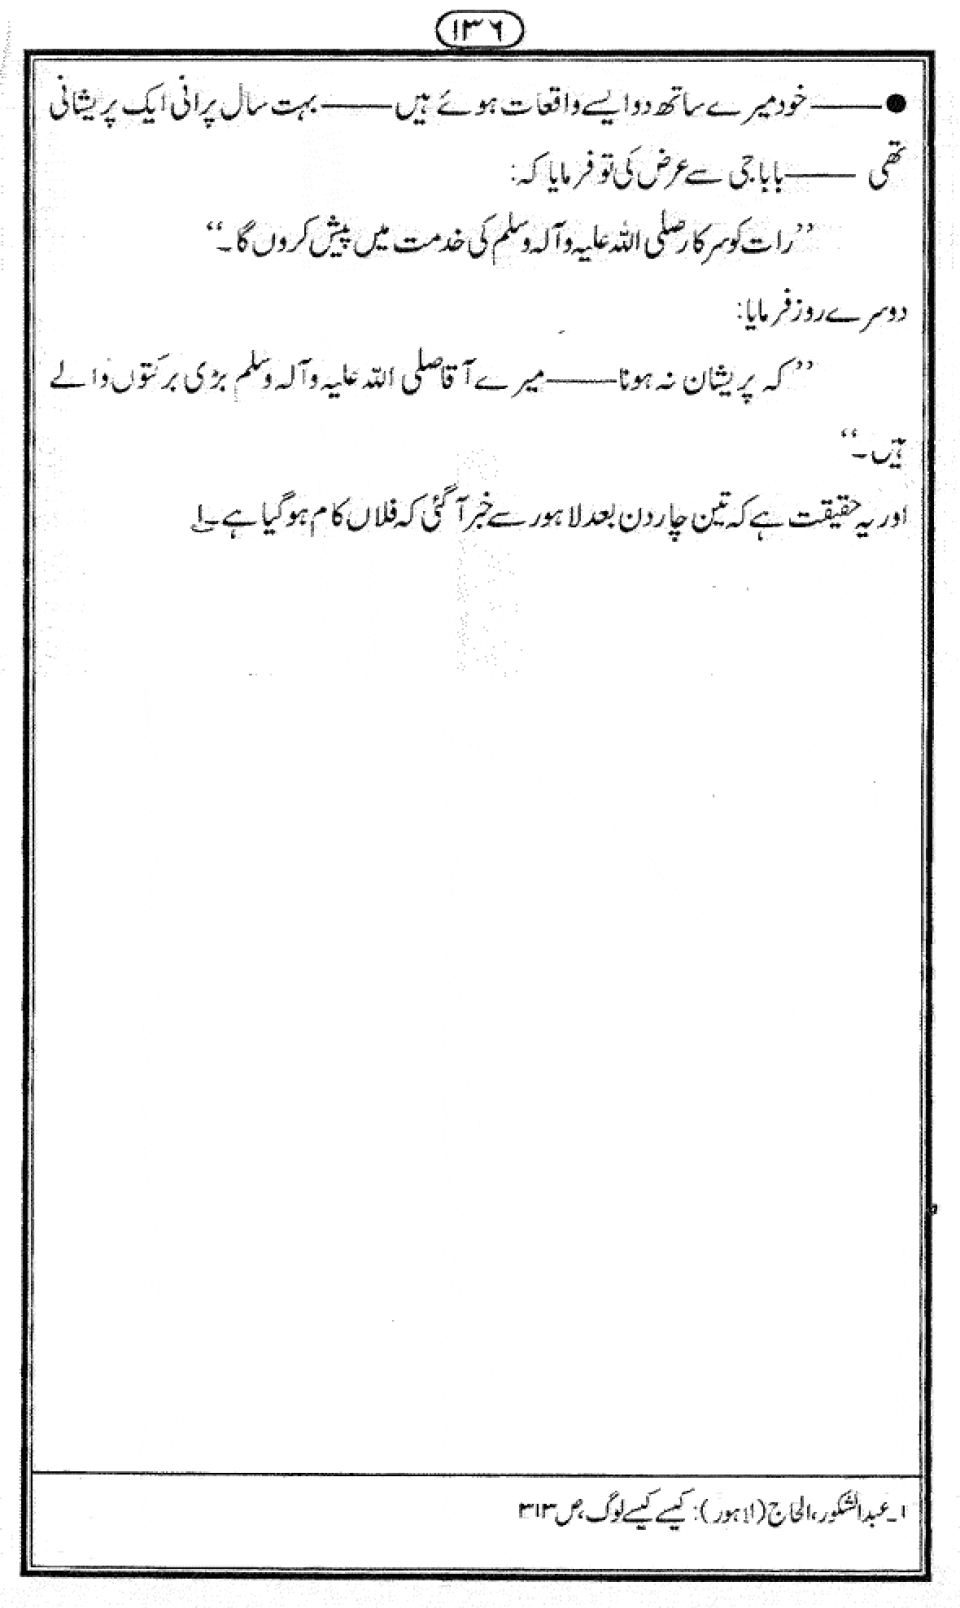 ۱۳۶
● ——— خود میرے ساتھ دو ایسے واقعات ہوئے ہیں ——— بہت سال پرانی ایک پریشانی
تھی ——— بابا جی سے عرض کی تو فرمایا کہ:
’’رات کو سرکار صلی اللہ علیہ وآلہ وسلم کی خدمت میں پیش کروں گا۔‘‘
دوسرے روز فرمایا:
’’کہ پریشان نہ ہونا ——— میرے آقا صلی اللہ علیہ وآلہ وسلم بڑی برکتوں والے
ہیں۔‘‘
اور یہ حقیقت ہے کہ تین چار دن بعد لاہور سے خبر آ گئی کہ فلاں کام ہو گیا ہے۔۱
۱۔ عبدالشکور، الحاج (لاہور): کیسے کیسے لوگ، ص ۳۱۳